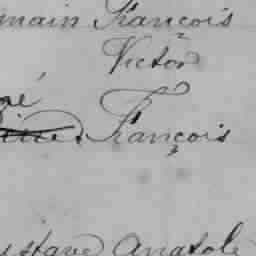 main François
Victor
gé
François
ustave Anatole